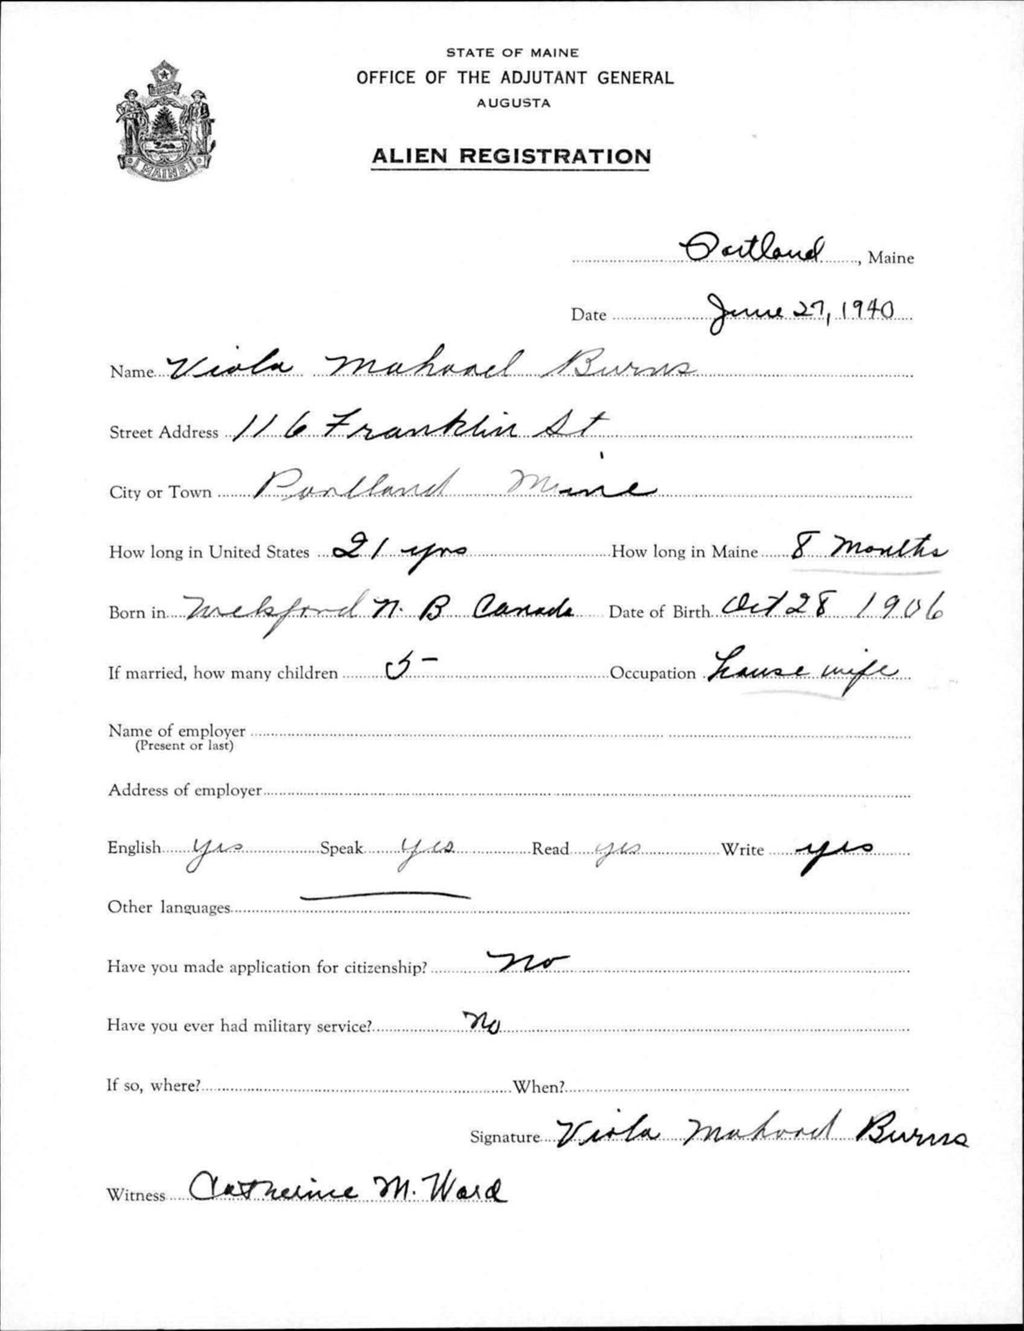 STATE OF MAINE
OFFICE OF THE ADJUTANT GENERAL
AUGUSTA
ALIEN REGISTRATION
MAINE
Portland, Maine
Date June 27, 1940
Name Viola Burns
Street Address 116 Franklin St
City or Town Portland Maine
How long in United States 21 yrs How long in Maine 8 Months
Born in N. B Canada Date of Birth Oct 28 1906
If married, how many children 5 Occupation house wife
Name of employer
(Present or last)
Address of employer
English yes Speak yes Read yes Write yes
Other languages
Have you made application for citizenship? No
Have you ever had military service? No
If so, where? When?
Signature Viola Burns
Witness Catherine M. Ward